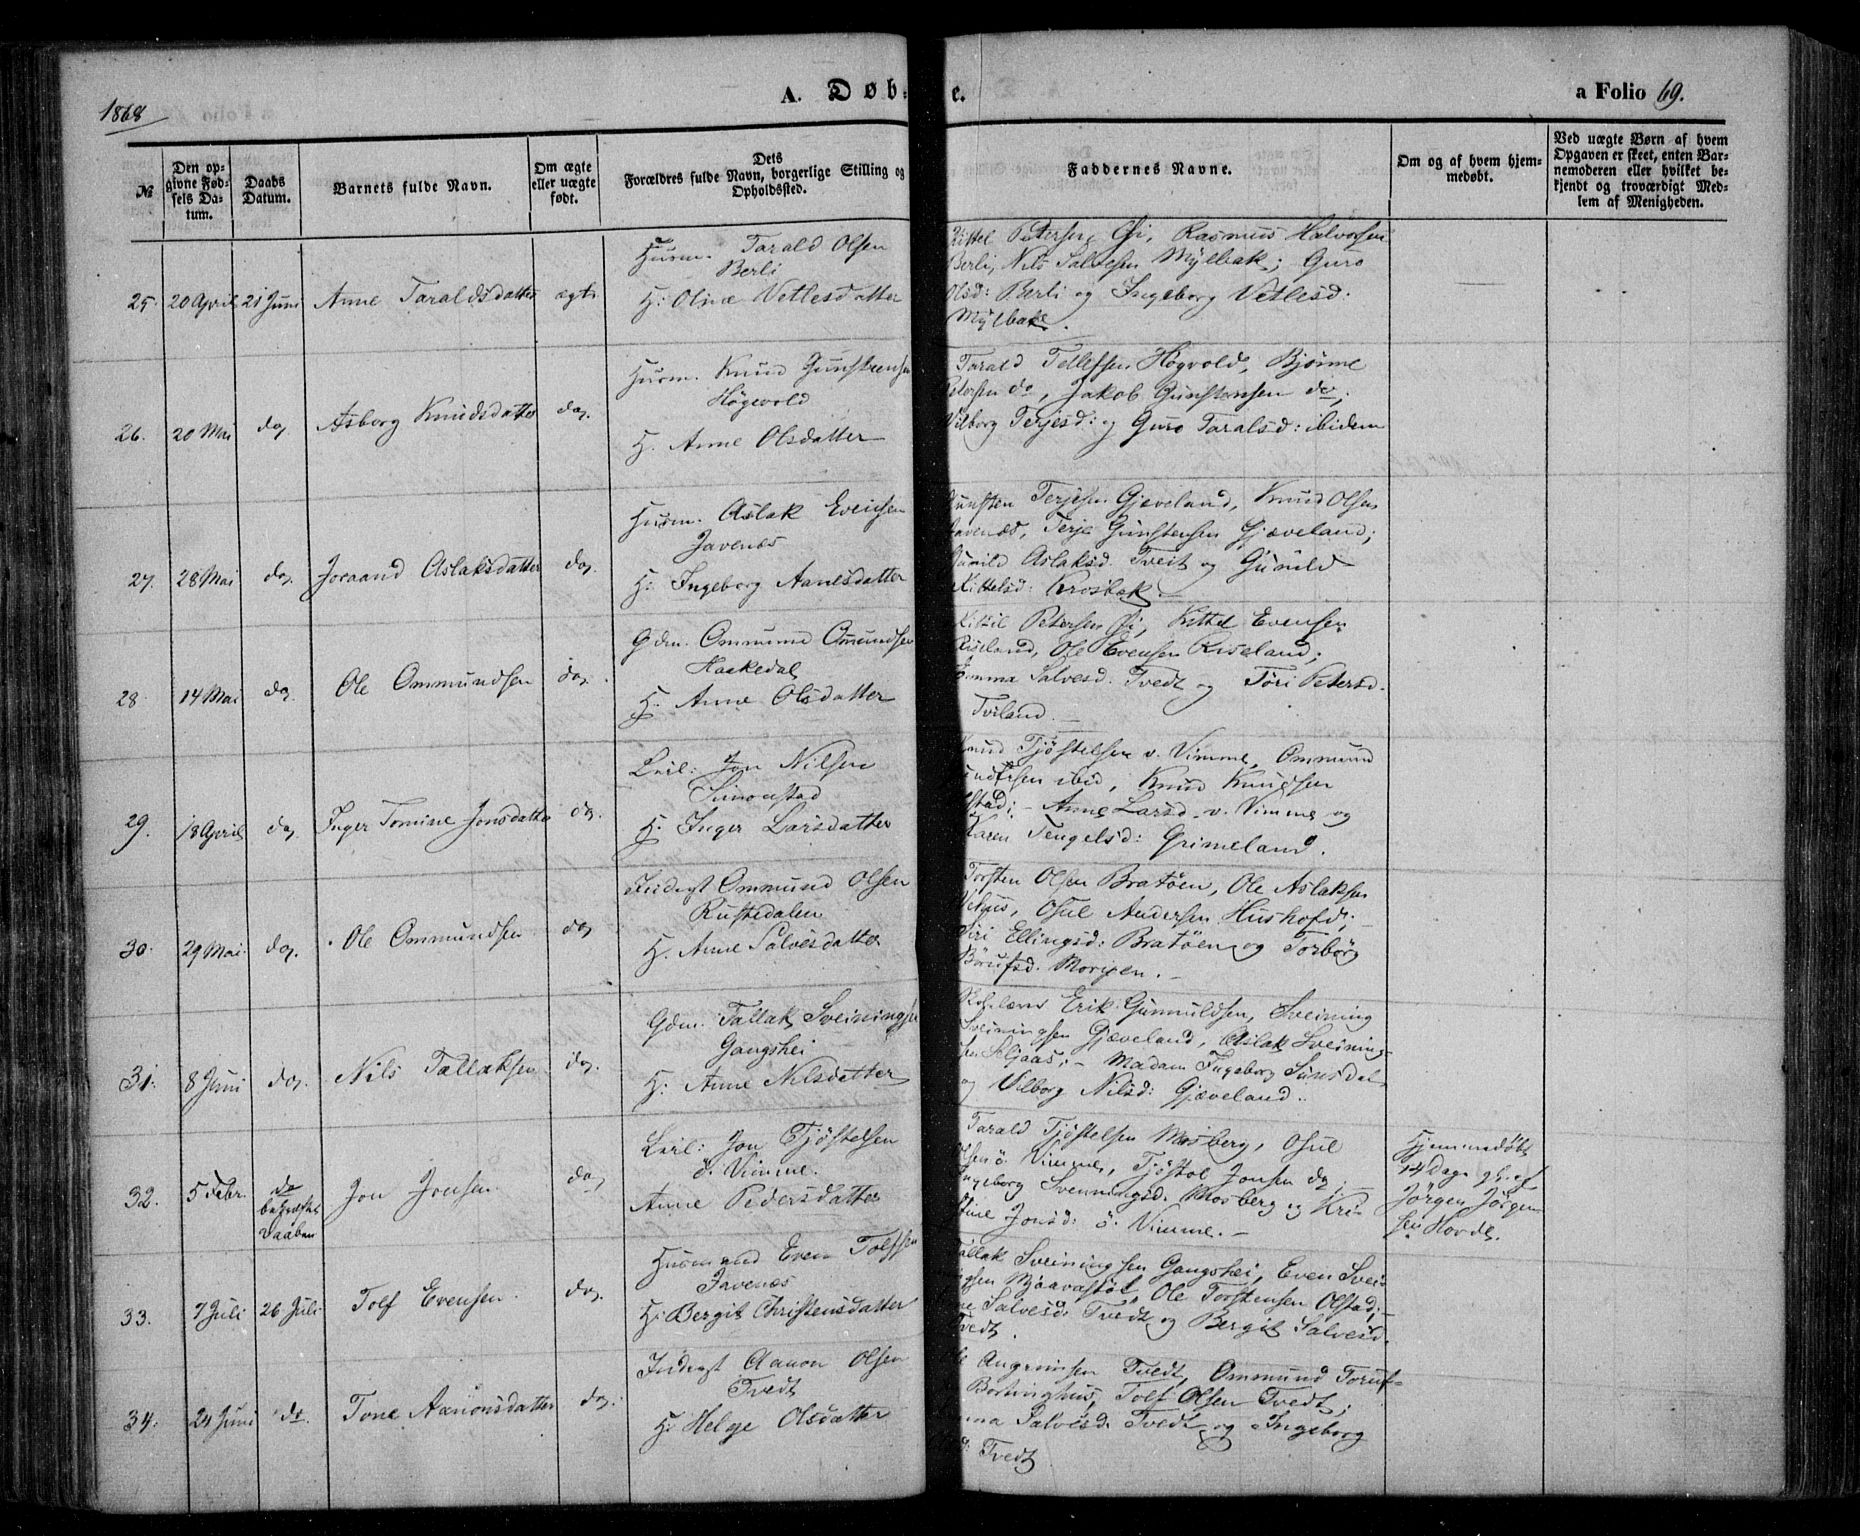 1868
A. Døb-
e.
a Folio 69.
№
Den op-
givne Fød-
sels Da-
tum.
Daabs
Datum.
Barnets fulde Navn.
Om ægte
eller uægte
født.
Dets
Forældres fulde Navn, borgerlige Stilling og
Opholdssted.
Faddernes Navne.
Om og af hvem hjem-
medøbt.
Ved uægte Børn af hvem
Opgaven er skeet, enten Bar-
nemoderen eller hvilket be-
kjendt og troværdigt Med-
lem af Menigheden.
25. 20 April 21 Juni Anne Taraldsdatter ægte
Husm. Tarald Olsen
Berli
H: Olive Vetlesdatter
Kittel Petersen Øi, Rasmus Halvorsen
Berli, Nils Salvesen Mylbak; Guro
Olsd: Berli og Ingeborg Vetlesd:
Mylbak.
26. 20 Mai do, Asborg Knudsdatter do,
Husm. Knud Gunstensen
Högevold
H. Anne Olsdatter
Tarald Tellefsen Högvold, Bjönne
Petersen do, Jakob Gunstensen do,
Vilborg Terjesd: og Guro Taralsd: ibidem
27. 28 Mai do, Joraand Aslaksdatter do,
Husm. Aslak Evensen
Javenæs
H: Ingeborg Aanesdatter
Gunsten Terjesen Gjeveland, Knud Olsen
Javenæs, Terje Gunstensen Gjæveland;
Gunild Aslaksd Tveit og Gunild
Kittelsd: Krosbak.
28. 14 Mai do, Ole Ommundsen do,
Gdm. Ommund Omundsen
Haakedal
H. Anne Olsdatter
Kittil Petersen Øi, Kittel Evensen
Riseland, Ole Evensen Riseland;
Salvesd. Tvedt og Töri Petersd.
Tveland.
29. 18 April do, Inger Tomine Jonsdatter do,
Leil: Jon Nilsen
Simonstad
H. Inger Larsdatter
Knud Tjöstelsen v. Vimme, Ommund
ibid, Knud Knudsen
Olstad; - Anne Larsd. v. Vimme og
Karen Tengelsd: Grimeland.
30. 29 Mai do, Ole Ommundsen do,
Inderst Ommund Olsen
Rustedalen
H. Anne Salvesdatter
Torsten Olsen Bratöen, Ole Aslaksen
Vehus, Osul Andersen Hushofd;
Siri Ellingsd: Bratöen og Torbörg
31. 8 Juni do, Nils Tallaksen do,
Gdm. Tallak Sveiningsen
Gangshei
H: Anne Nilsdatter
Erik Gunnuldsen, Sveining
Sveiningsen Gjæveland, Aslak Sveining-
sen - Madam Ingeborg Sunsdal
og Vilborg Nilsd: Gjæveland.
32. 5 Febr. do
bekræftet
Daaben
Jon Jonsen do,
Leil: Jon Tjöstelsen
ö. Vimme.
Anne Pedersdatter
Tarald Tjöstelsen Mosberg, Osul
Olsen ö. Vimme, Tjöstol Jonsen do;
Ingeborg Svenningsd. Mosberg og Kri-
stine Jonsd: ö. Vimme.
Hjemmedöbt
14 Dage gl. af
Jörgen Jörgen-
sen Hovde.
33. 7 Juli 26 Juli Tolf Evensen do,
Husmand Even Tolfsen
Javenæs
H: Bergit Christensdatter
Tallak Sveiningsen Gangshei, Even Svei-
ningsen Mjaavastöl, Ole Torstensen Olstad;
Salvesd. Tvedt og Bergit Salvesd.
Tvedt.
34. 24 Juni do. Tone Aanonsdatter do,
Inderst Aanon Olsen
Tvedt
H: Helge Olsdatter
Tvedt, Ommund
Tolf Olsen Tvedt;
Salvesd. Tvedt og Ingeborg
Tvedt